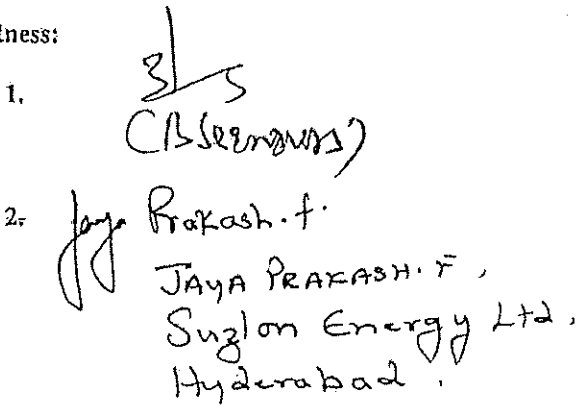 tness:
1.
2.
Jaya Prakash.f.
JAYA PRAKASH. F,
Suzlon Energy Ltd,
Hyderabad.